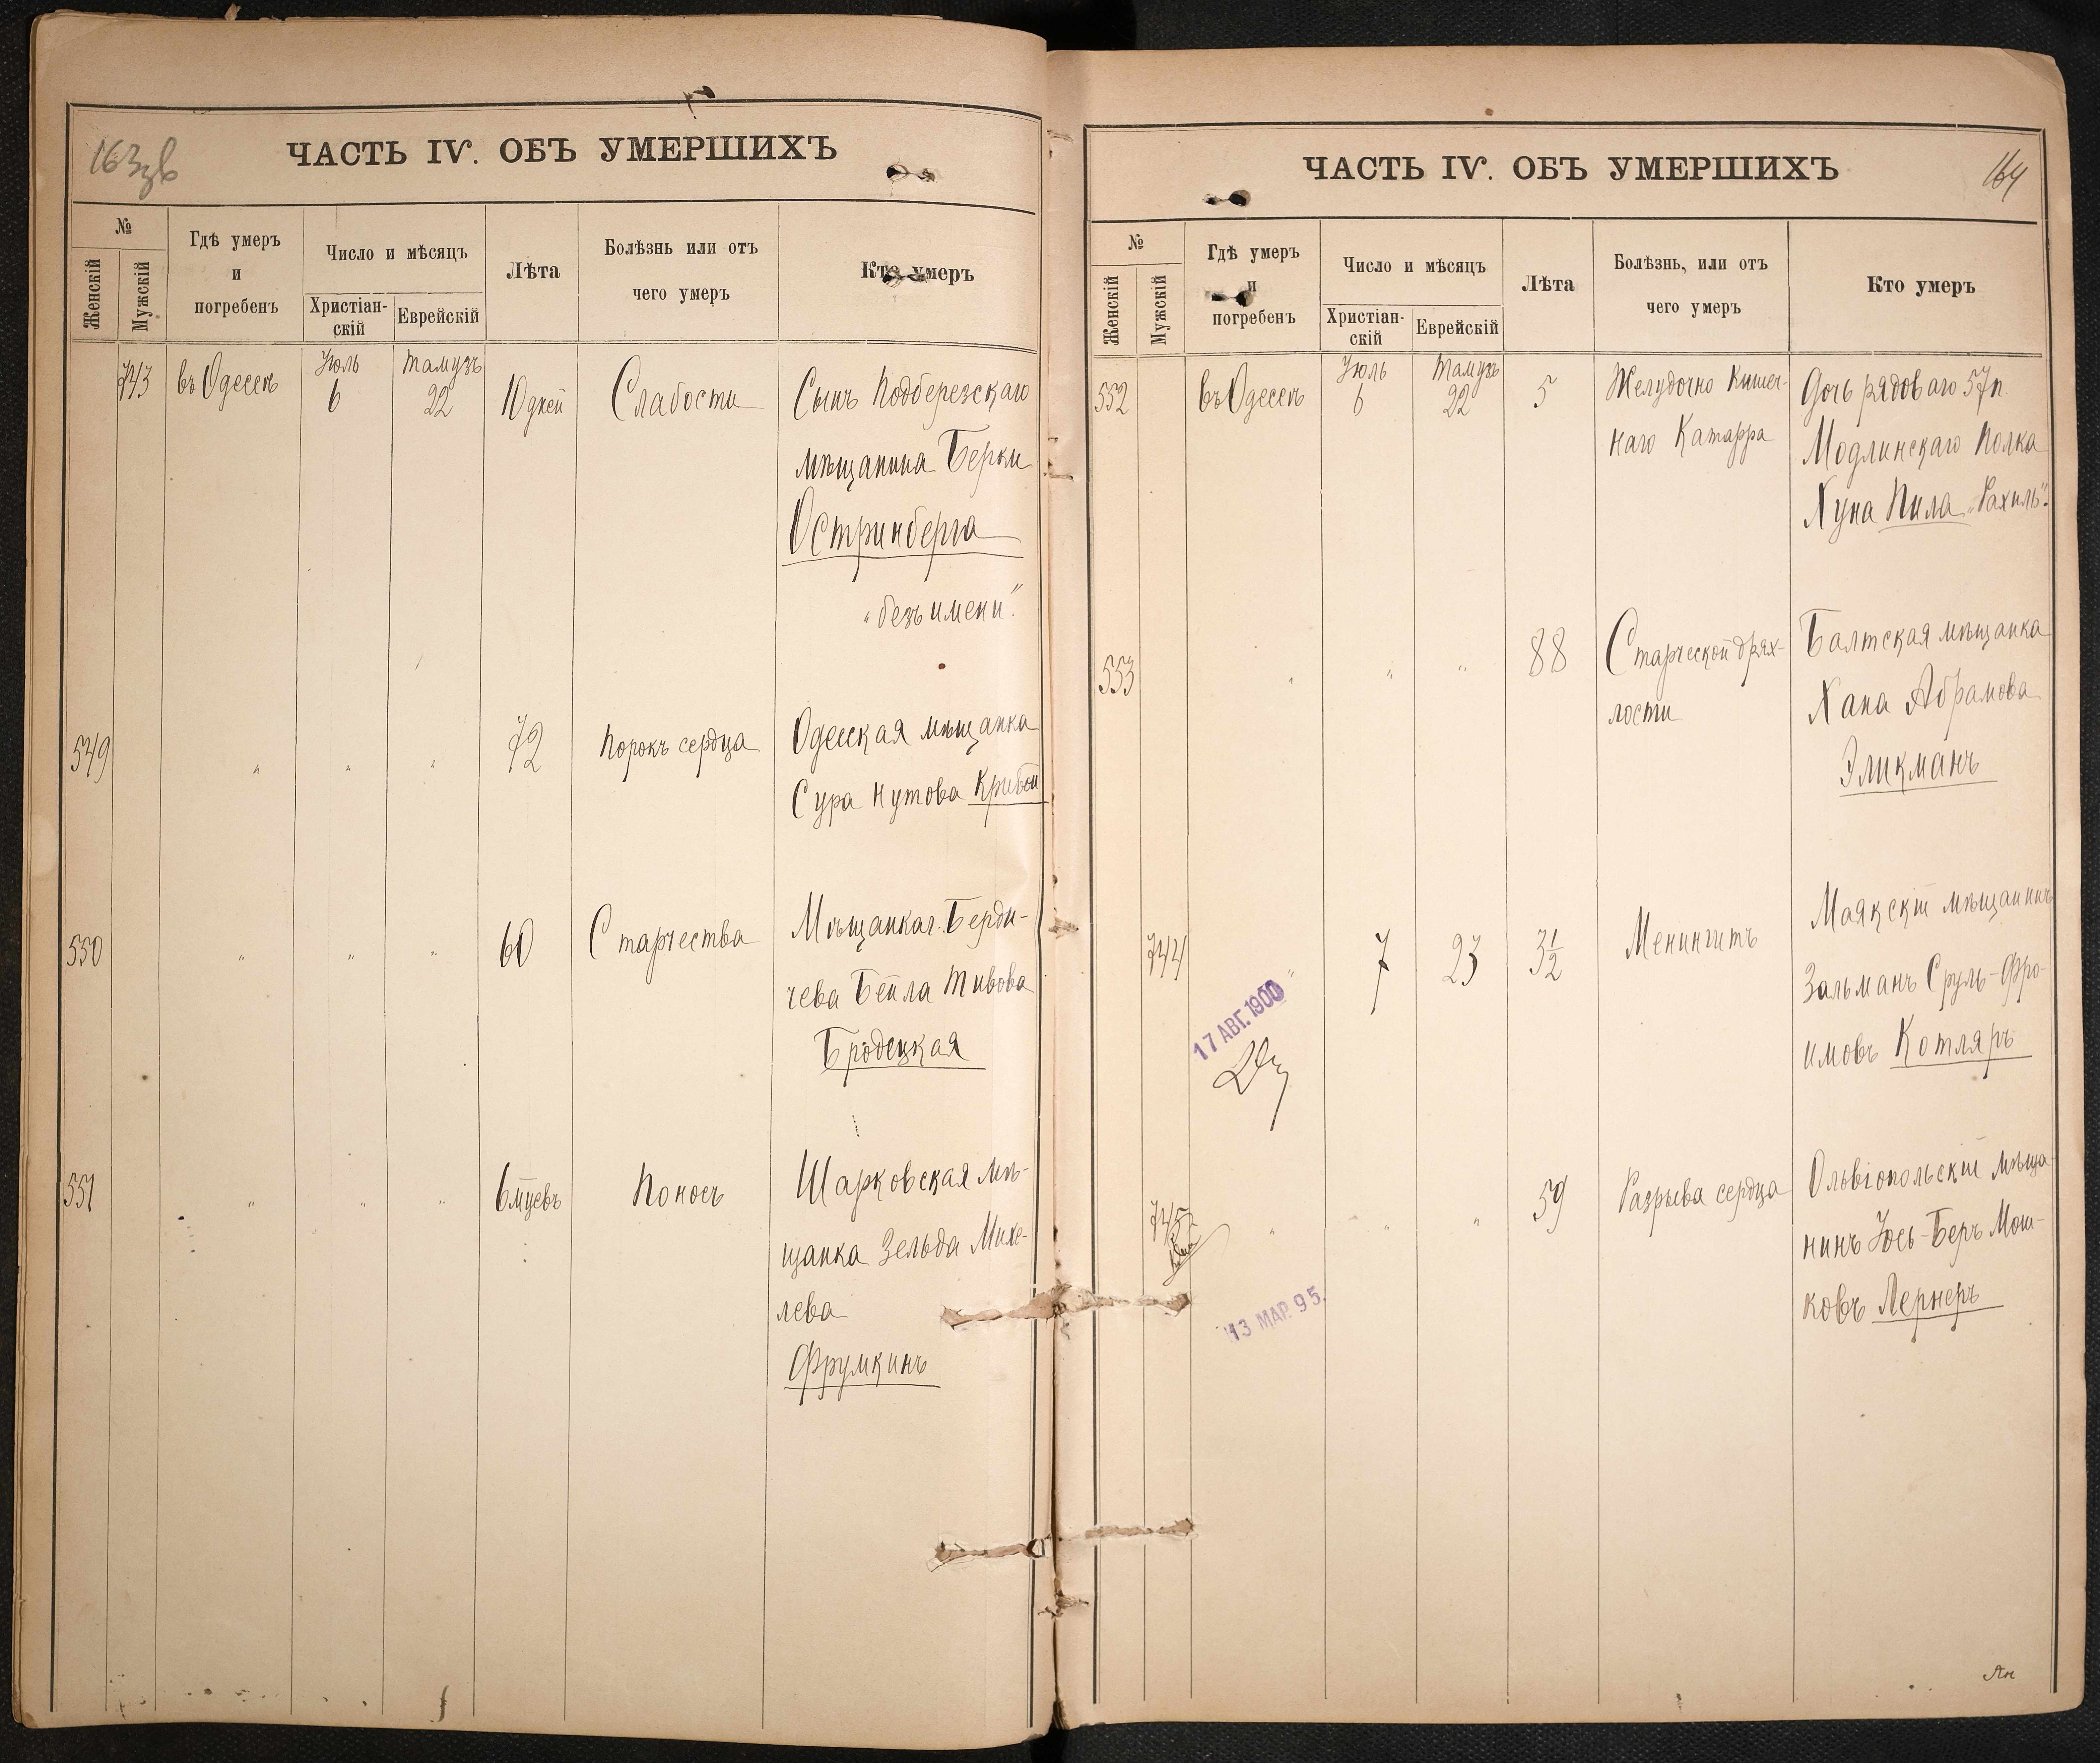 163зв
ЧАСТЬ IV. ОБЪ УМЕРШИХЪ
№
Женскій
Мужскій
Гдѣ умеръ
и
погребенъ
Число и мѣсяцъ
Христіан-
скій
Еврейскій
Лѣта
Болѣзнь или отъ
чего умеръ
Кто умеръ
743 въ Одессѣ Іюль 6 Тамузъ 22 10 дней Слабости Сынъ Подберезскаго
мѣщанина Берки
Остринберга
"безъ имени".
549 " " " 72 Порокъ сердца Одесская мѣщанка
Сура Нутова Кривой
550 " " " 60 Старчества Мѣщанка г. Берди-
чева Бейла Тивова
Бродецкая
551 " " " 6 мцевъ Поносъ Шарковская мѣ-
щанка Зельда Михе-
лева
Фрумкинъ
164
ЧАСТЬ IV. ОБЪ УМЕРШИХЪ
№
Женскій
Мужскій
Гдѣ умеръ
и
погребенъ
Число и мѣсяцъ
Христіан-
скій
Еврейскій
Лѣта
Болѣзнь, или отъ
чего умеръ
Кто умеръ
552 въ Одессѣ Іюль 6 Тамузъ 22 5 Желудочно Кишеч- Дочь рядоваго 57 п.
наго Катарра Модлинскаго Полка
Хуна Пила "Рахиль".
553 " " " 88 Старческой дрях- Балтская мѣщанка
лости Хана Абрамова
Эликманъ
744 " 7 23 3 1/2 Менингитъ Маякскій мѣщанинъ
Зальманъ Сруль-Фро-
имовъ Котляръ
17 АВГ. 1900
745 " " " 59 Разрыва сердца Ольвіопольскій мѣща-
нинъ Іось-Беръ Мош-
ковъ Лернеръ
13 МАР. 95.